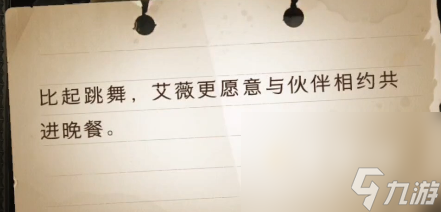 比起跳舞，艾薇更愿意与伙伴相约共
进晚餐。
九游